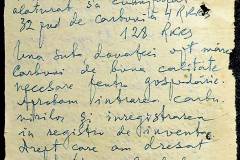 alaturat s'a cumparat
32 pud de carbuni à 4 RKS
128 RKS
Una suta douazeci opt mărci
Carbuni de buna calitate
necesare pentru gospodărie.
Aprobam intrarea carbu
nilor și inregistrarea
in registru de inventar
drept care am dresat